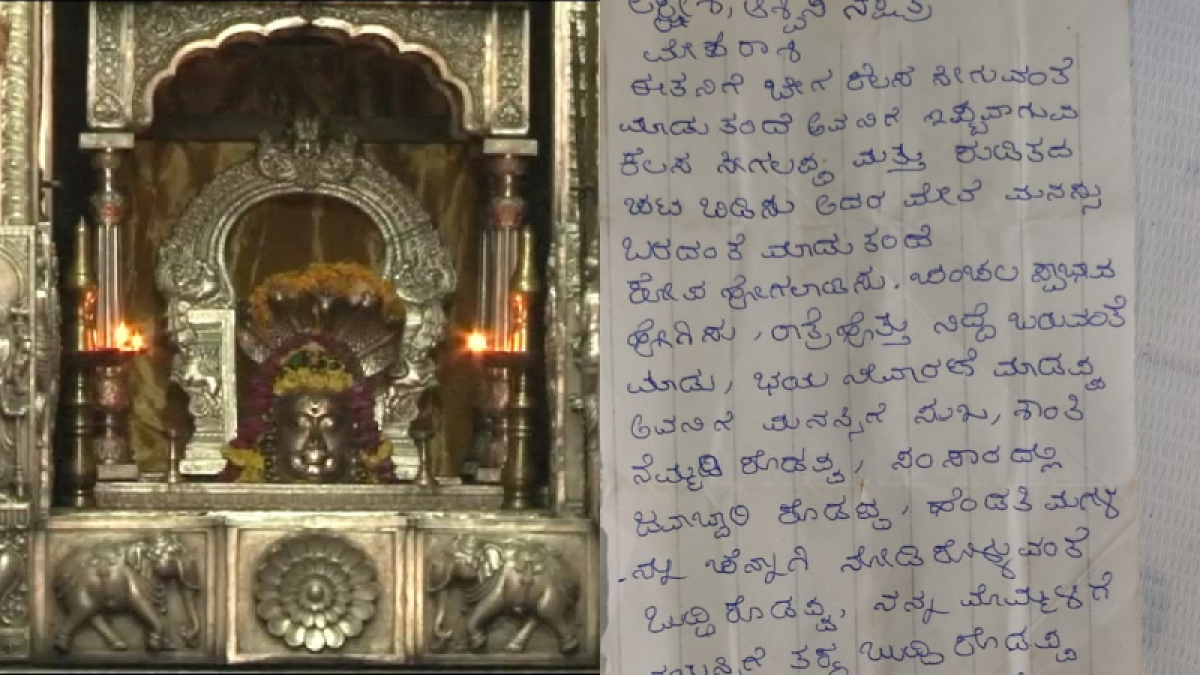 ಲಕ್ಷ್ಮೀಶ, ಅಶ್ವಿನಿ ನಕ್ಷತ್ರ
ಮೇಶ ರಾಶಿ
ಈತನಿಗೆ ಬೇಗ ಕೆಲಸ ಸೀಗುವಂತೆ
ಮಾಡು ತಂದೆ ಅವನಿಗೆ ಇಷ್ಟವಾಗುವ
ಕೆಲಸ ಸೀಗಲಪ್ಪ ಮತ್ತು ಕುಡಿತದ
ಚಟ ಬಿಡಿಸು ಅದರ ಮೇಲೆ ಮನಸ್ಸು
ಬರದಂತೆ ಮಾಡು ತಂದೆ
ಕೋಪ ಹೋಗಲಾಡಿಸು. ಚಂಚಲ ಸ್ವಾಭಾವ
ಹೋಗಿಸು, ರಾತ್ರೆಹೊತ್ತು ನಿದ್ದೆ ಬರುವಂತೆ
ಮಾಡು, ಭಯ ನೀವಾರಣೆ ಮಾಡಪ್ಪ
ಅವನಿಗೆ ಮನಸ್ಸಿಗೆ ಸುಖ, ಶಾಂತಿ
ನೆಮ್ಮದಿ ಕೊಡಪ್ಪ, ಸಂಸಾರದಲ್ಲಿ
ಜವಾಬ್ದಾರಿ ಕೊಡಪ್ಪ, ಹೆಂಡತಿ ಮಗಳ
ನ್ನು ಚೆನ್ನಾಗಿ ನೋಡಿಕೊಳ್ಳುವಂತೆ
ಬುದ್ದಿ ಕೊಡಪ್ಪ, ನನ್ನ ಮೊಮ್ಮಗಳಿಗೆ
ತಕ್ಕ ಬುದ್ದಿ ಕೊಡಪ್ಪ